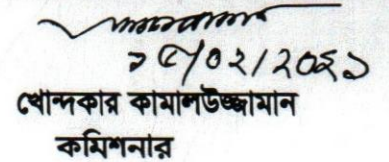 ১৫/০২/২০২১
খোন্দকার কামালউজ্জামান
কমিশনার